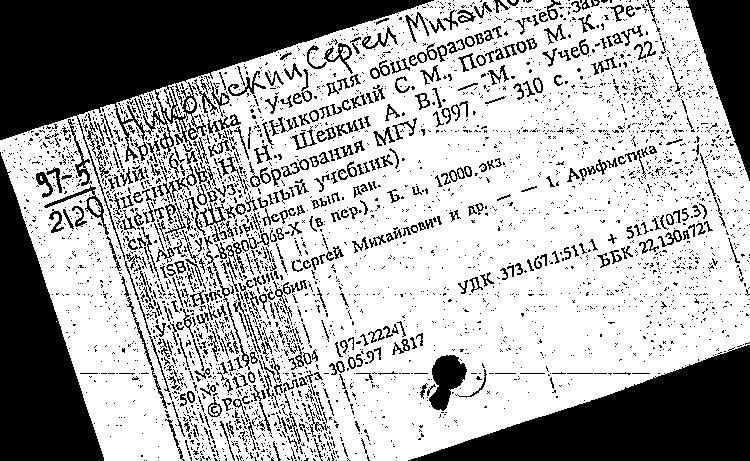 Никольский, Сергей Михайлов
97-5
2120
Арифметика : Учеб. для общеобразоват. учеб. заве
ний : 6-й кл. / [Никольский С. М., Потапов М. К., Ре-
шетников Н. Н., Шевкин А. В.]. — М. : Учеб.-науч.
центр довуз. образования МГУ, 1997. — 310 с. : ил.; 22
см. — (Школьный учебник).
Авт. указаны перед вып. дан.
ISBN 5-88800-068-X (в пер.) : Б. ц., 12000 экз.
1. Никольский, Сергей Михайлович и др. — — 1. Арифметика —
Учебники и пособия.
УДК 373.167.1:511.1 + 511.1(075.3)
ББК 22.130я721
№ 11198
50 № 1110 № 3804 [97-12224]
© Рос. кн. палата 30.05.97 А817